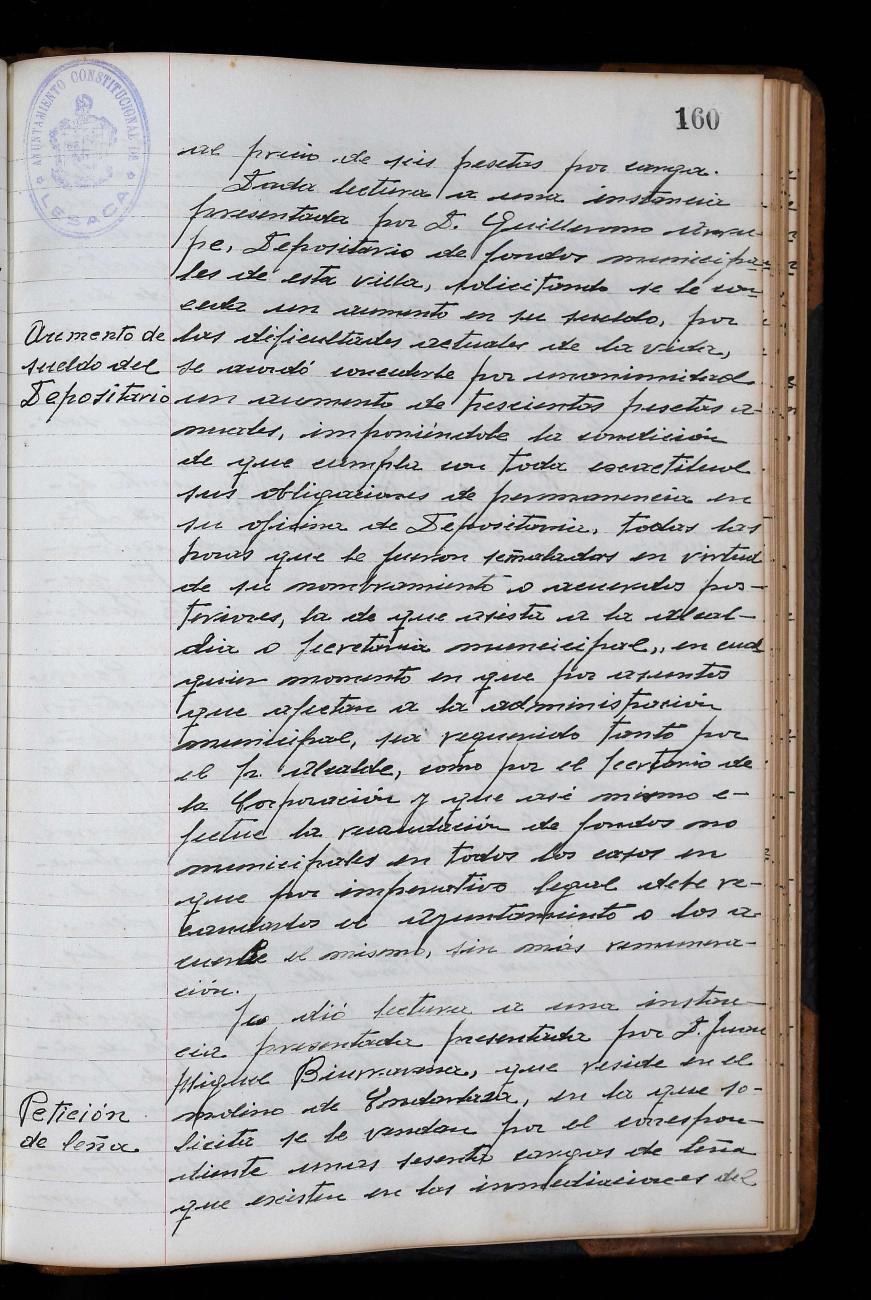 AYUNTAMIENTO CONSTITUCIONAL DE
LESACA
160
al precio de seis pesetas por carga.
Dada lectura a una instancia
presentada por D. Guillermo
pe, Depositario de fondos municipa-
les de esta villa, solicitando se le con-
ceda un aumento en su sueldo, por
Aumento de
sueldo del
Depositario
las dificultades actuales de la vida,
se acordó concederle por unanimidad
un aumento de trescientas pesetas a-
nuales, imponiéndole la condición
de que cumpla con toda escactitud
sus obligaciones de permanencia en
su oficina de Depositaria, todas las
horas que le fueron señaladas en virtud
de su nombramiento o acuerdos pos-
teriores, la de que asista a la alcal-
dia o Secretaria municipal, en cual
quier momento en que por asuntos
que afectan a la administración
municipal, sea requerido tanto por
el Sr. Alcalde, como por el Secretario de
la Corporación y que asi mismo e-
fectue la recaudación de fondos no
municipales en todos los casos en
que por imperativo legal debe re-
caudarlos el Ayuntamiento o los a-
cuerde el mismo, sin más remunera-
ción.
Se dió lectura a una instan-
cia presentada presentada por D. Juan
Miguel que reside en el
molino de Endarlaza, en la que so-
Petición
de leña
licita se le vendan por el correspon-
diente unas sesenta cargas de leña
que existen en las inmediaciones del